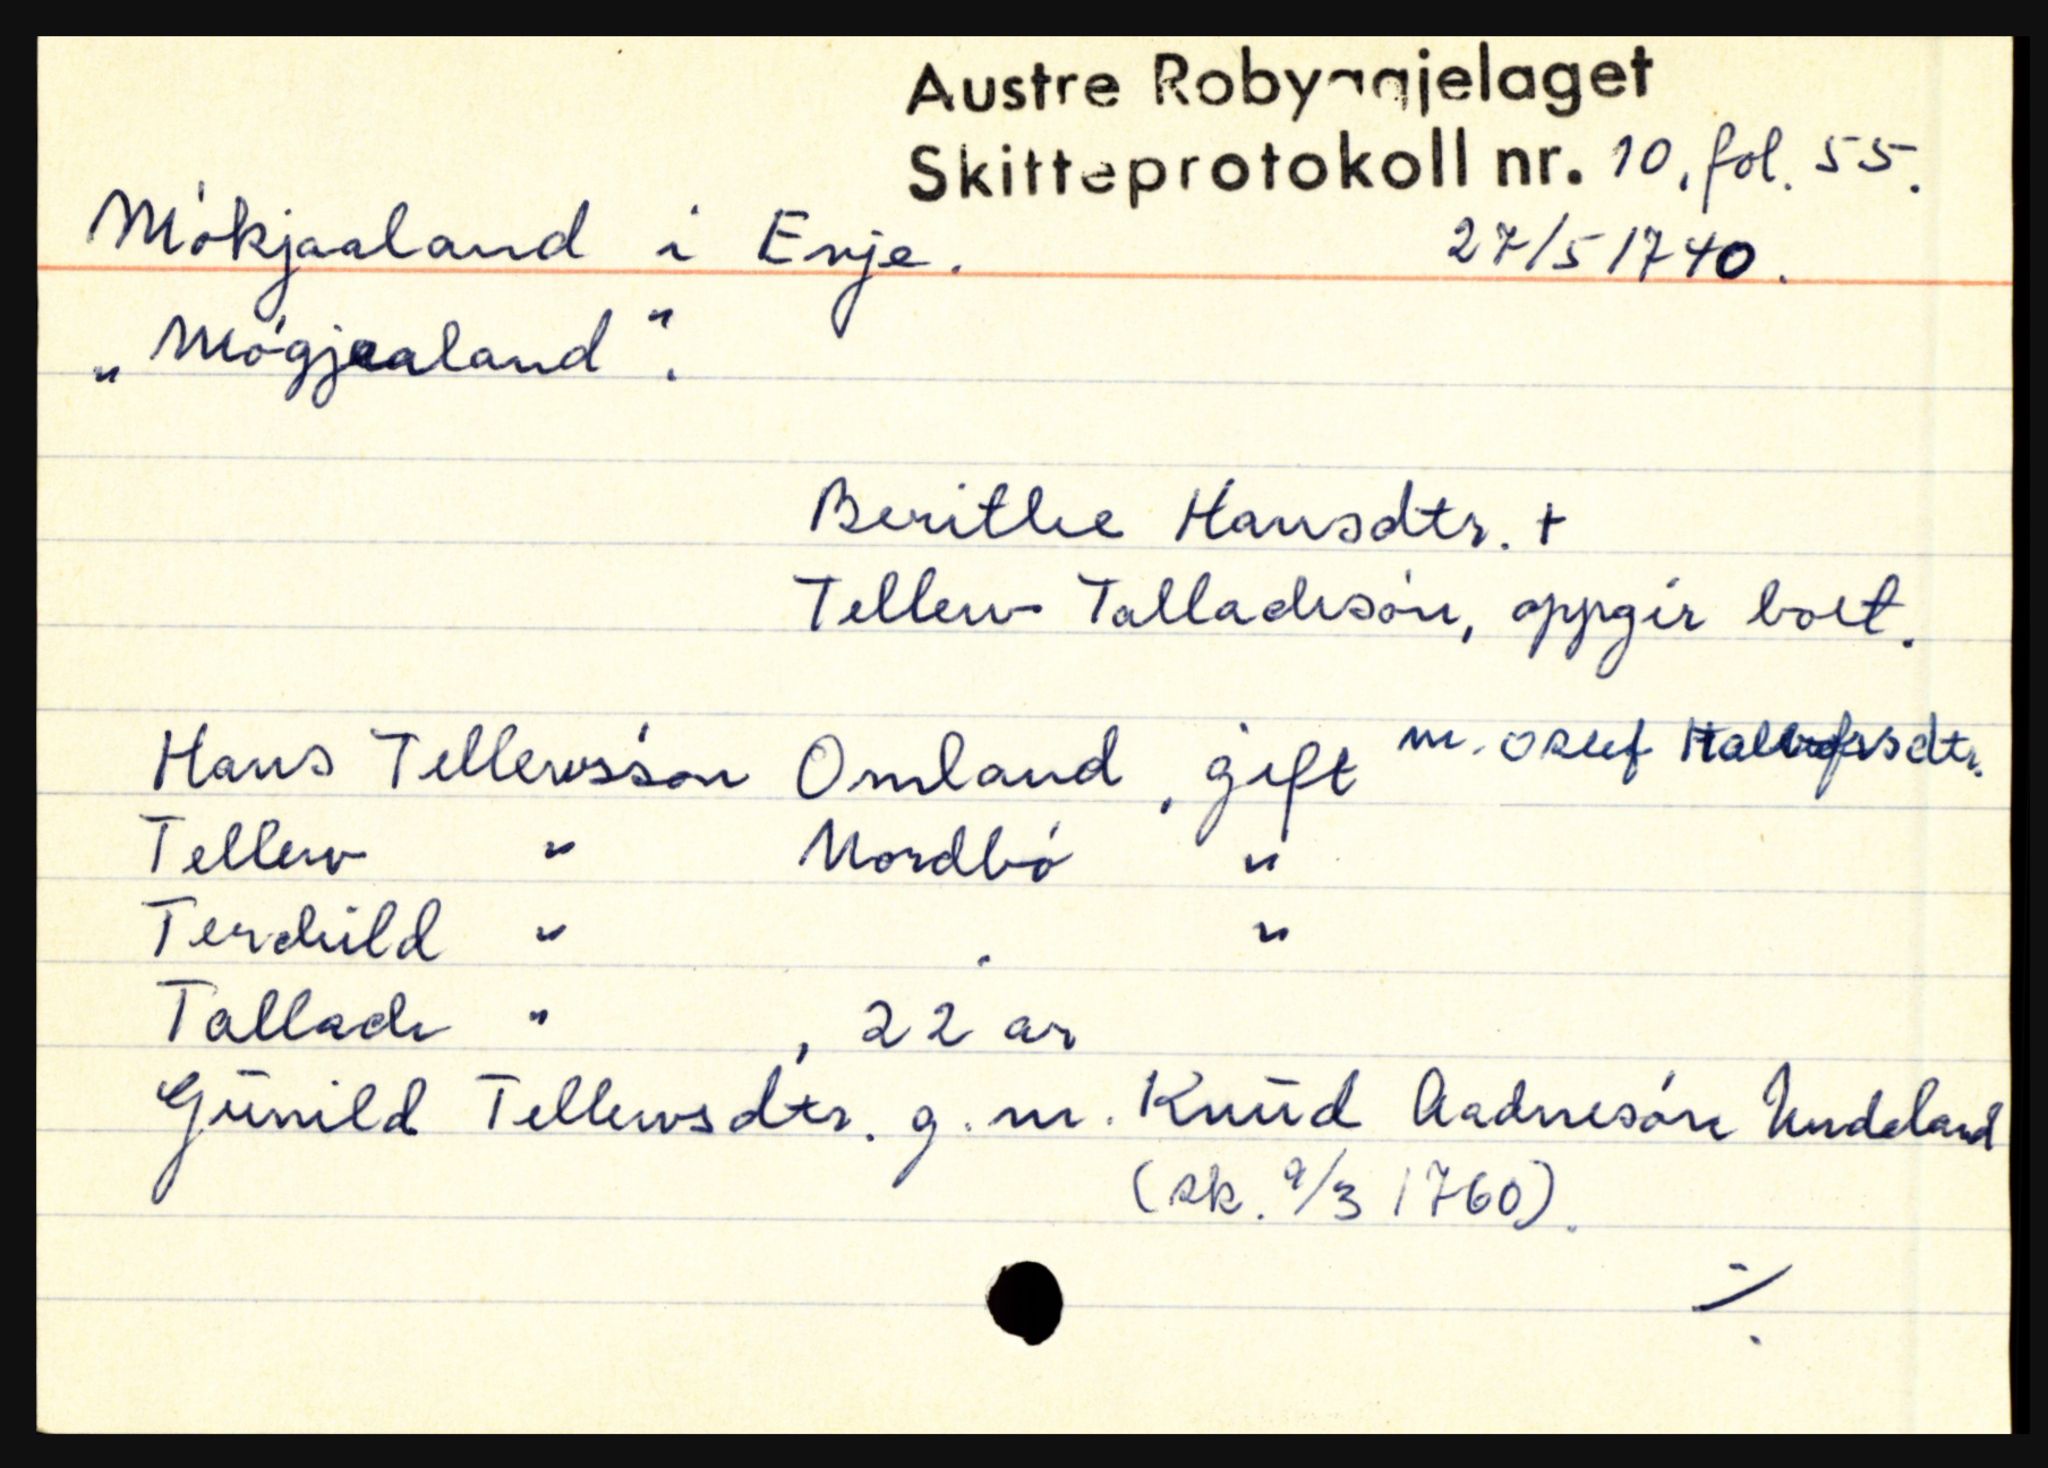 Austre Robyggjelaget
Skifteprotokoll nr. 10, fol. 55.
Mókjaaland i Evje. 27/5 1740.
„Mógjaaland".
Berithe Hansdtr. +
Tellew Talladsón, oppgir boet.
Hans Tellewsson Omland, gift m. Osuf
Tellew " Nordbó "
Terchild " . "
Tallach ", 22 ar
Gūnild Tellewsdtr. g. m. Knūd Aadnesón Undeland
(sk. 9/3 1760).
./.